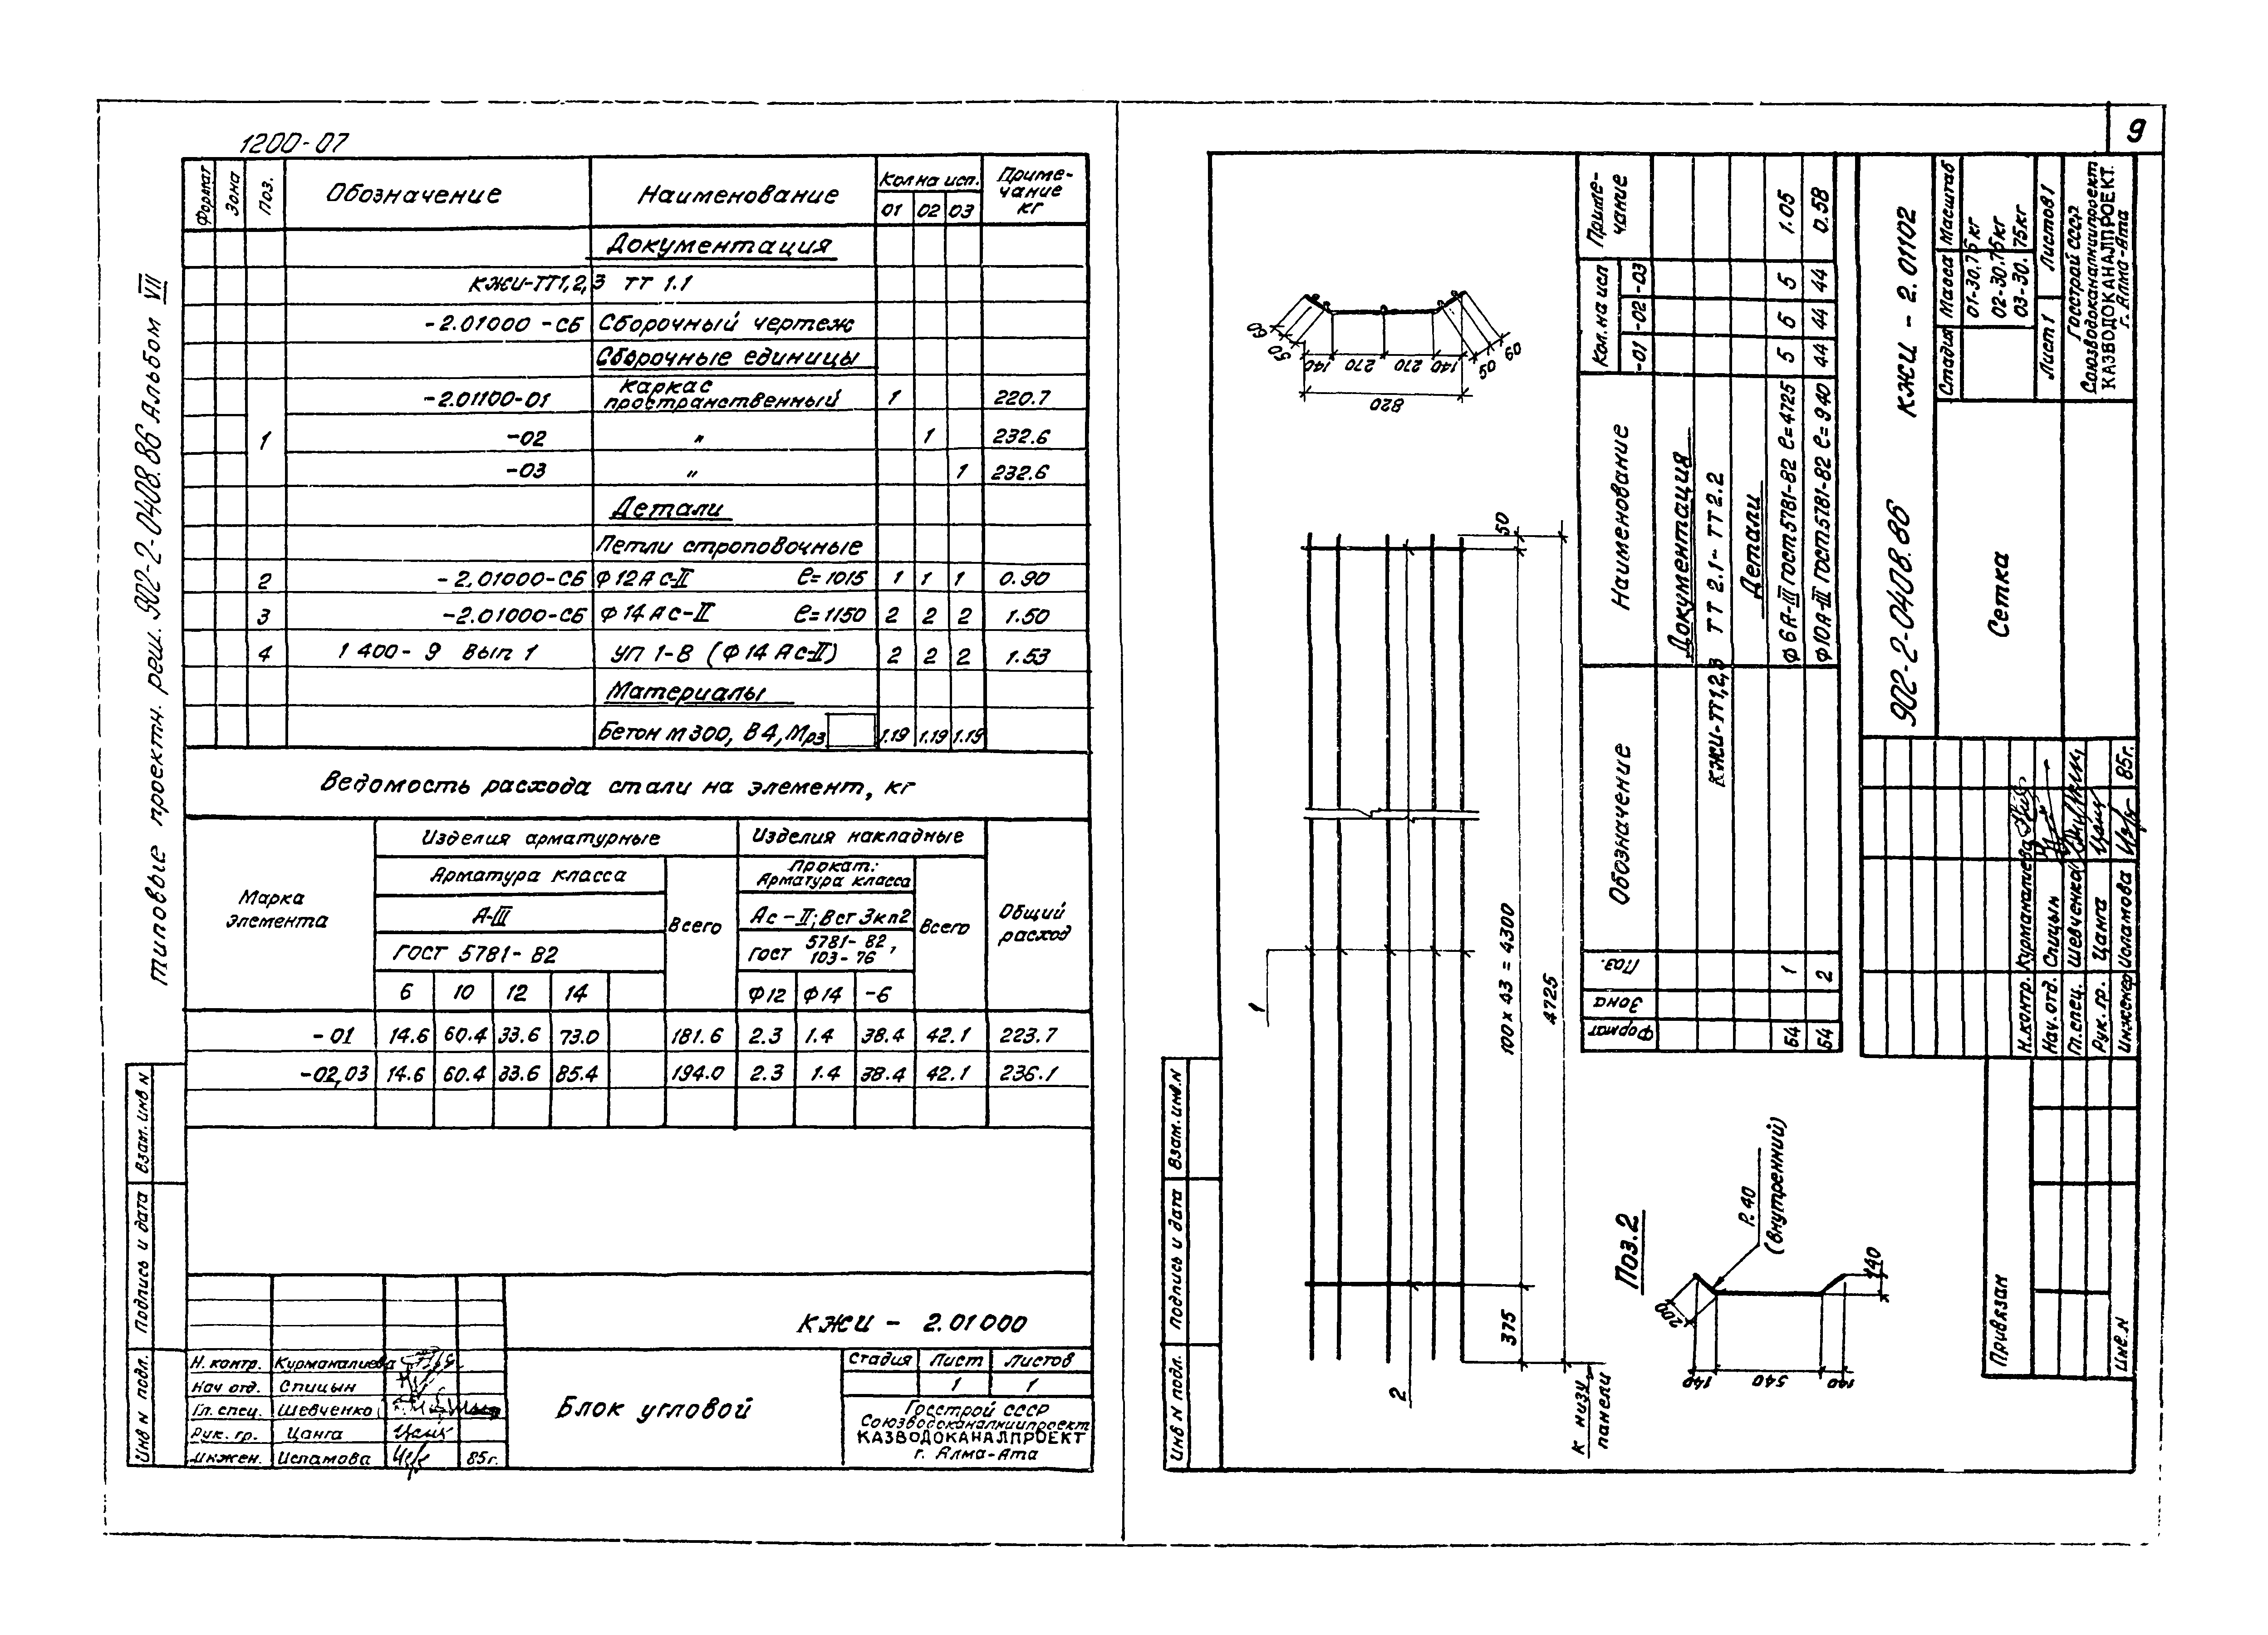 1200-07
типовые проектн. реш. 902-2-0408.86 Альбом VII
Формат Зона Поз. Обозначение Наименование Кол на исп. Приме-чание кг
01 02 03
Документация
КЖИ-ТТ1,2,3 ТТ 1.1
-2.01000-СБ Сборочный чертеж
Сборочные единицы
-2.01100-01 Каркас пространственный 1 220.7
1 -02 " 1 232.6
-03 " 1 232.6
Детали
Петли строповочные
2 -2.01000-СБ Ф12Ас-II ℓ=1015 1 1 1 0.90
3 -2.01000-СБ Ф14Ас-II ℓ=1150 2 2 2 1.50
4 1400-9 Вып 1 УП 1-8 (Ф14Ас-II) 2 2 2 1.53
Материалы
Бетон м300, В4, Мрз 1.19 1.19 1.19
Ведомость расхода стали на элемент, кг
Марка элемента
Изделия арматурные Изделия накладные
Арматура класса Всего Прокат: Арматура класса Всего Общий расход
А-III Ас-II; Вст 3кп2
ГОСТ 5781-82 Гост 5781-82, 103-76
6 10 12 14 Ф12 Ф14 -6
-01 14.6 60.4 33.6 73.0 181.6 2.3 1.4 38.4 42.1 223.7
-02,03 14.6 60.4 33.6 85.4 194.0 2.3 1.4 38.4 42.1 236.1
Инв N подл. Подпись и дата Взам. инв N
КЖИ - 2.01000
Н. контр. Курманалиева
Нач отд. Спицын
Гл. спец. Шевченко
Рук. гр. Цанга
Инжен. Исламова 85г.
Блок угловой
Стадия Лист Листов
1 1
Госстрой СССР
Союзводоканалниипроект
КАЗВОДОКАНАЛПРОЕКТ
г. Алма-Ата
9
60 50 140 270 270 140 50 60
820
50
100 х 43 = 4300
4725
375
1
2
К низу панели
Поз.2
R.40
(внутренний)
200
140 540 140
140
Формат Зона Поз. Обозначение Наименование Кол. на исп Приме-чание
-01 -02 -03
Документация
КЖИ-ТТ1,2,3 ТТ 2.1-ТТ2.2
Детали
Б4 1 Ф6А-III гост5781-82 ℓ=4725 5 5 5 1.05
Б4 2 Ф10А-III гост5781-82 ℓ=940 44 44 44 0.58
902-2-0408.86 КЖИ - 2.01102
Сетка
Стадия Масса Масштаб
01-30.75 кг
02-30.75кг
03-30.75кг
Лист 1 Листов 1
Госстрой СССР
Союзводоканалниипроект
КАЗВОДОКАНАЛПРОЕКТ.
г. Алма-Ата
Н.контр. Курманалиева
Нач.отд. Спицын
Гл.спец. Шевченко
Рук. гр. Цанга
Инженер Исламова 85г.
Привязан
Инв.N
Инв N подл. Подпись и дата Взам.инв.N